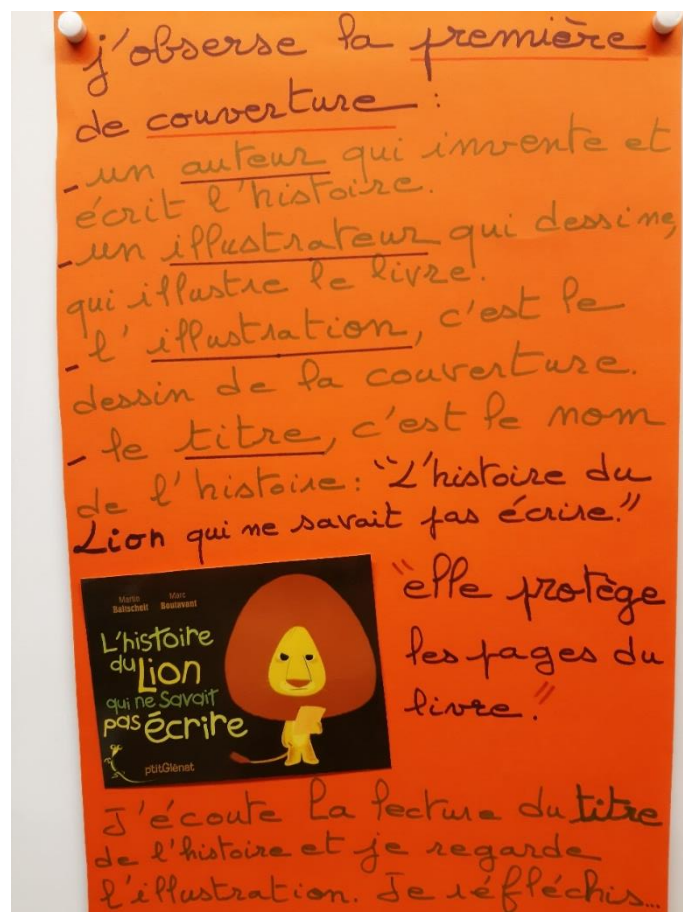 j'observe la première
de couverture :
- un auteur qui invente et
écrit l'histoire.
- un illustrateur qui dessine,
qui illustre le livre.
- l'illustration, c'est le
dessin de la couverture.
- le titre, c'est le nom
de l'histoire : "L'histoire du
Lion qui ne savait pas écrire."
Martin Baltscheit
Marc Boutavant
L'histoire
du Lion
qui ne savait
pas écrire
ptitGlénat
"elle protège
les pages du
livre."
J'écoute la lecture du titre
de l'histoire et je regarde
l'illustration. Je réfléchis...